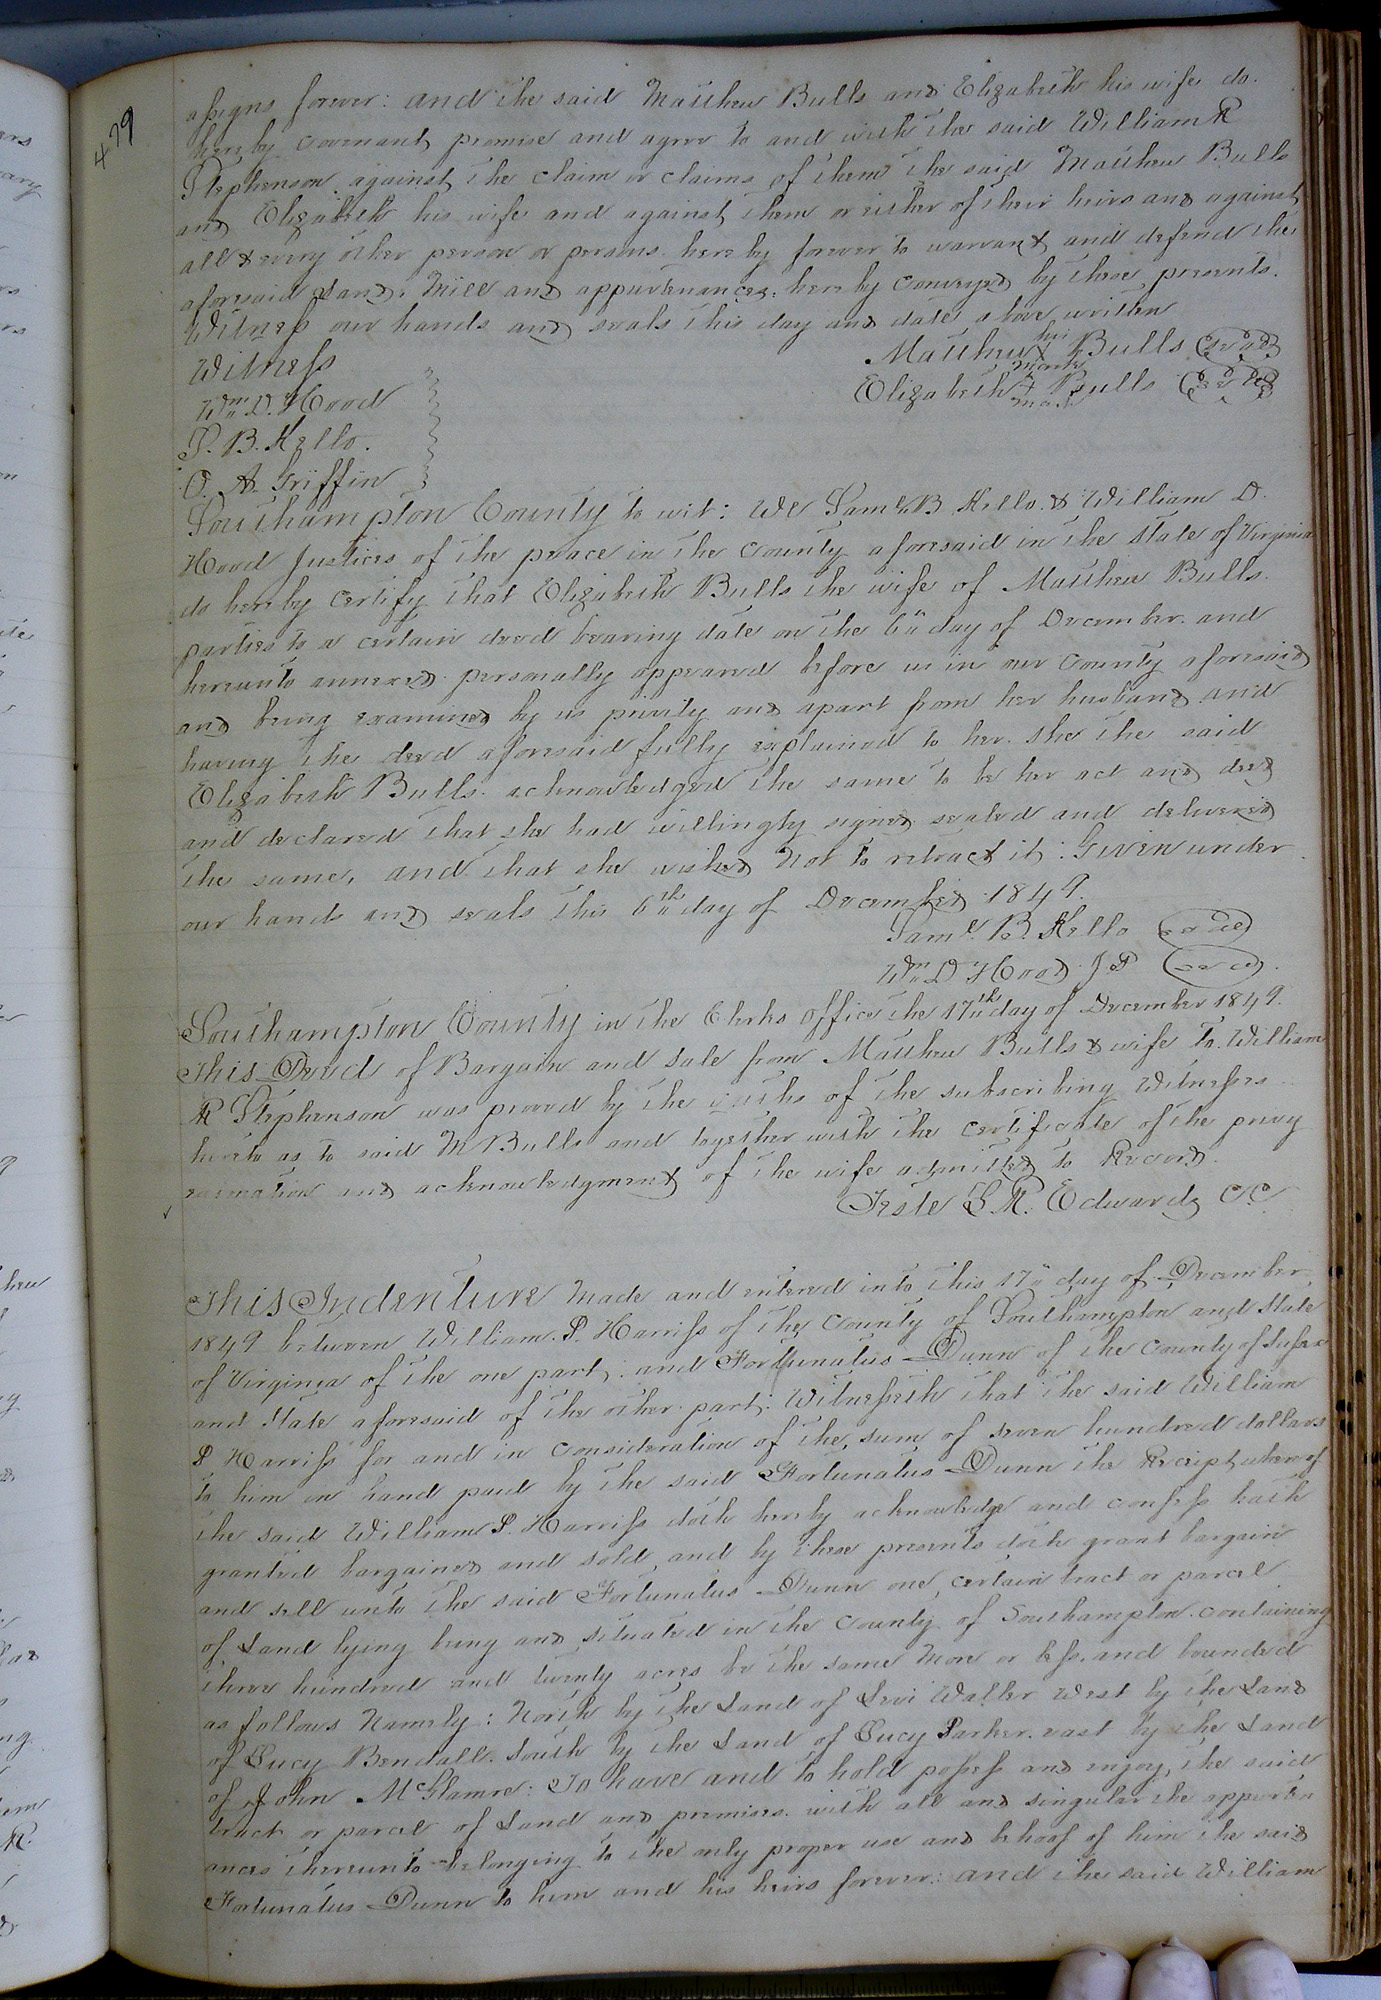 479
assigns forever: and the said Matthew Bulls and Elizabeth his wife do.
hereby covenant, promise and agree to and with the said William R
Stephenson against the claim or claims of them the said Matthew Bulls
and Elizabeth his wife and against them or either of their heirs and against
all & every other person or persons hereby forever to warrant and defend the
aforesaid Land, Mill and appurtenances, hereby conveyed by these presents.
Witness our hands and seals this day and date above written
Witness
Matthew his X mark Bulls (seal)
Elizabeth X mark Bulls (seal)
Wm D. Hood
S. B. Kello.
O. A. Griffin
Southampton County to wit: We Saml B. Kello & William D.
Hood Justices of the peace in the County aforesaid in the State of Virginia
do hereby certify that Elizabeth Bulls the wife of Matthew Bulls.
parties to a certain deed bearing date on the 6th day of December and
hereunto annexed personally appeared before us in our County aforesaid
and being examined by us privily and apart from her husband and
having the deed aforesaid fully explained to her. She the said
Elizabeth Bulls. acknowledged the same to be her act and deed
and declared that she had willingly signed sealed and delivered
the same, and that she wished not to retract it: Given under
our hands and seals this 6th day of December 1849.
Saml. B. Kello (seal)
Wm D Hood JP (seal)
Southampton County in the Clerks Office the 17th day of December 1849.
This Deed of Bargain and Sale from Matthew Bulls & wife to William
R Stephenson was proved by the oaths of the subscribing Witnesses
hereto as to said M Bulls and together with the certificate of the privy
examation and acknowledgment of the wife admitted to Record.
Teste L. R. Edwards CC
This Indenture Made and entered into this 17th day of December
1849 between William P. Harriss of the County of Southampton and State
of Virginia of the one part, and Fortunatus Dunn of the County of Sussex
and State aforesaid of the other part: Witnesseth that the said William
P Harriss for and in consideration of the sum of seven hundred dollars
to him in hand paid by the said Fortunatus Dunn the Receipt whereof
the said William P. Harriss doth hereby acknowledge and confess hath
granted bargained and sold, and by these presents doth grant bargain
and sell unto the said Fortunatus Dunn one certain tract or parcel
of Land lying being and situated in the County of Southampton containing
three hundred and twenty acres be the same more or less, and bounded
as follows Namely: North by the Land of Levi Waller West by the Land
of Lucy Bendall. South by the Land of Lucy Parker. east by the Land
of John McGlamre: To have and to hold possess and enjoy, the said
tract or parcel of Land and premises. with all and singular the appurten
ances thereunto belonging to the only proper use and behoof of him the said
Fortunatus Dunn to him and his heirs forever: and the said William